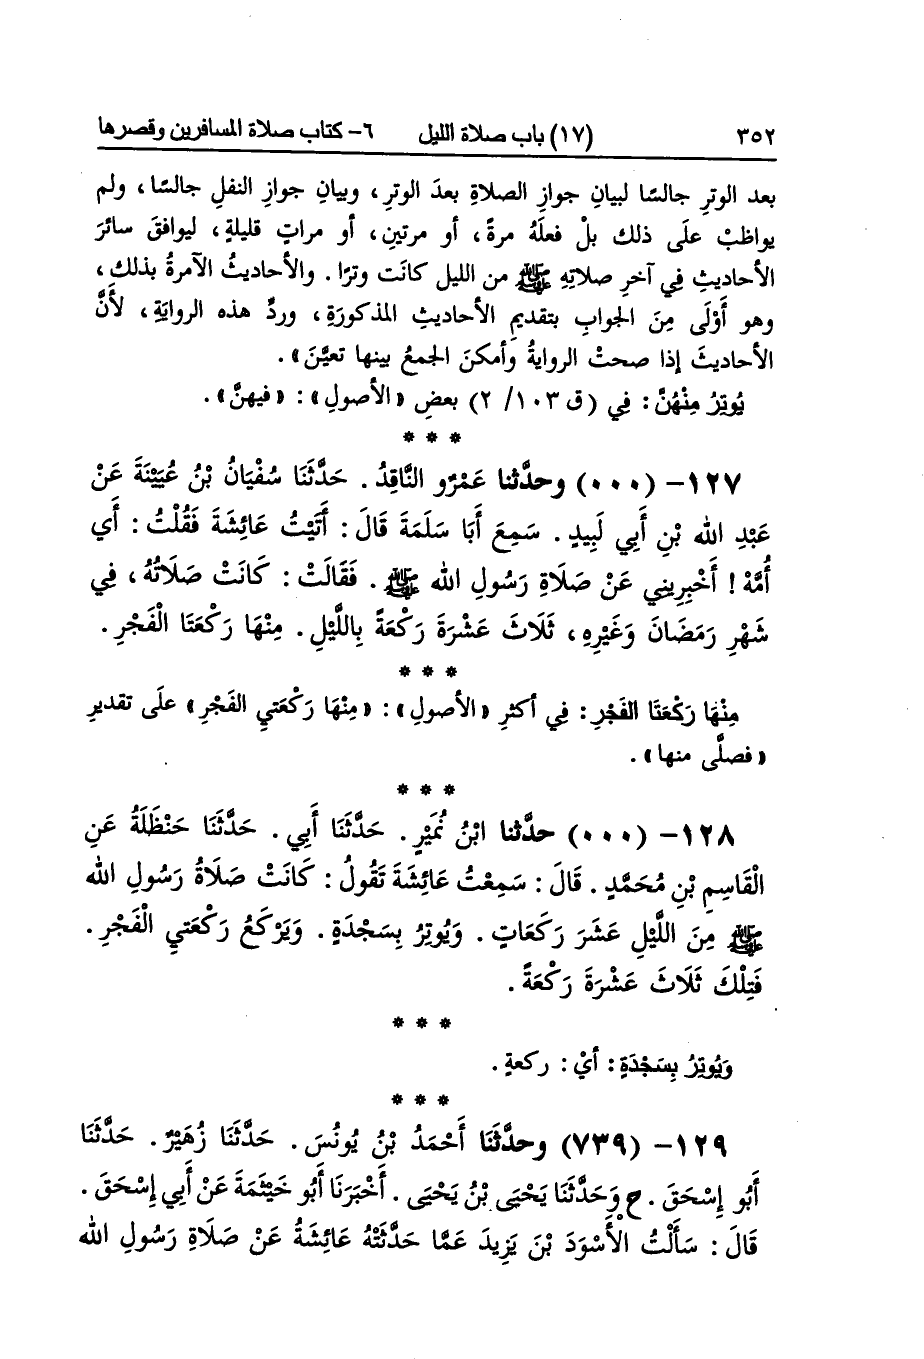 ٣٥٢ (١٧) باب صلاة الليل ٦- كتاب صلاة المسافرين وقصرها
بعد الوترِ جالسًا لبيانِ جوازِ الصلاةِ بعدَ الوترِ، وبيانِ جوازِ النفلِ جالسًا، ولم
يواظبْ علَى ذلك بلْ فعلَهُ مرةً، أو مرتينِ، أو مراتٍ قليلةٍ، ليوافقَ سائرَ
الأحاديثِ فِي آخرِ صلاتِهِ ﷺ من الليل كانَت وترًا. والأحاديثُ الآمرةُ بذلك،
وهو أَوْلَى مِنَ الجوابِ بتقديمِ الأحاديثِ المذكورَةِ، وردِّ هذه الروايَةِ، لأَنَّ
الأحاديثَ إذا صحتْ الروايةُ وأمكنَ الجمعُ بينها تعيَّنَ».
يُوتِرُ مِنْهُنَّ: فِي (ق ١٠٣/ ٢) بعضِ «الأصولِ»: «فيهنَّ».
* * *
١٢٧- (٠٠٠) وحدَّثنا عَمْرٌو النَّاقِدُ. حَدَّثَنَا سُفْيَانُ بْنُ عُيَيْنَةَ عَنْ
عَبْدِ الله بْنِ أَبِي لَبِيدٍ. سَمِعَ أَبَا سَلَمَةَ قَالَ: أَتَيْتُ عَائِشَةَ فَقُلْتُ: أَي
أُمَّهْ! أَخْبِرِينِي عَنْ صَلَاةِ رَسُولِ الله ﷺ. فَقَالَتْ: كَانَتْ صَلَاتُهُ، فِي
شَهْرِ رَمَضَانَ وَغَيْرِهِ، ثَلَاثَ عَشْرَةَ رَكْعَةً بِاللَّيْلِ. مِنْهَا رَكْعَتَا الْفَجْرِ.
* * *
مِنْهَا رَكْعَتَا الفَجْرِ: فِي أكثرِ «الأصولِ»: «مِنْهَا رَكْعَتيِ الفَجْرِ» علَى تقديرِ
«فصلَّى منها».
* * *
١٢٨- (٠٠٠) حدَّثنا ابْنُ نُمَيْرٍ. حَدَّثَنَا أَبِي. حَدَّثَنَا حَنْظَلَةُ عَنِ
الْقَاسِمِ بْنِ مُحَمَّدٍ. قَالَ: سَمِعْتُ عَائِشَةَ تَقُولُ: كَانَتْ صَلَاةُ رَسُولِ الله
ﷺ مِنَ اللَّيْلِ عَشَرَ رَكَعَاتٍ. وَيُوتِرُ بِسَجْدَةٍ. وَيَرْكَعُ رَكْعَتيِ الْفَجْرِ.
فَتِلْكَ ثَلَاثَ عَشْرَةَ رَكْعَةً.
* * *
وَيُوتِرُ بِسَجْدَةٍ: أيْ: ركعةٍ.
* * *
١٢٩- (٧٣٩) وحدَّثَنَا أَحْمَدُ بْنُ يُونُسَ. حَدَّثَنَا زُهَيْرٌ. حَدَّثَنَا
أَبُو إِسْحَقَ. ح وَحَدَّثَنَا يَحْيَى بْنُ يَحْيَى. أَخْبَرَنَا أَبُو خَيْثَمَةَ عَنْ أَبِي إِسْحَقَ.
قَالَ: سَأَلْتُ الْأَسْوَدَ بْنَ يَزِيدَ عَمَّا حَدَّثَتْهُ عَائِشَةُ عَنْ صَلَاةِ رَسُولِ الله